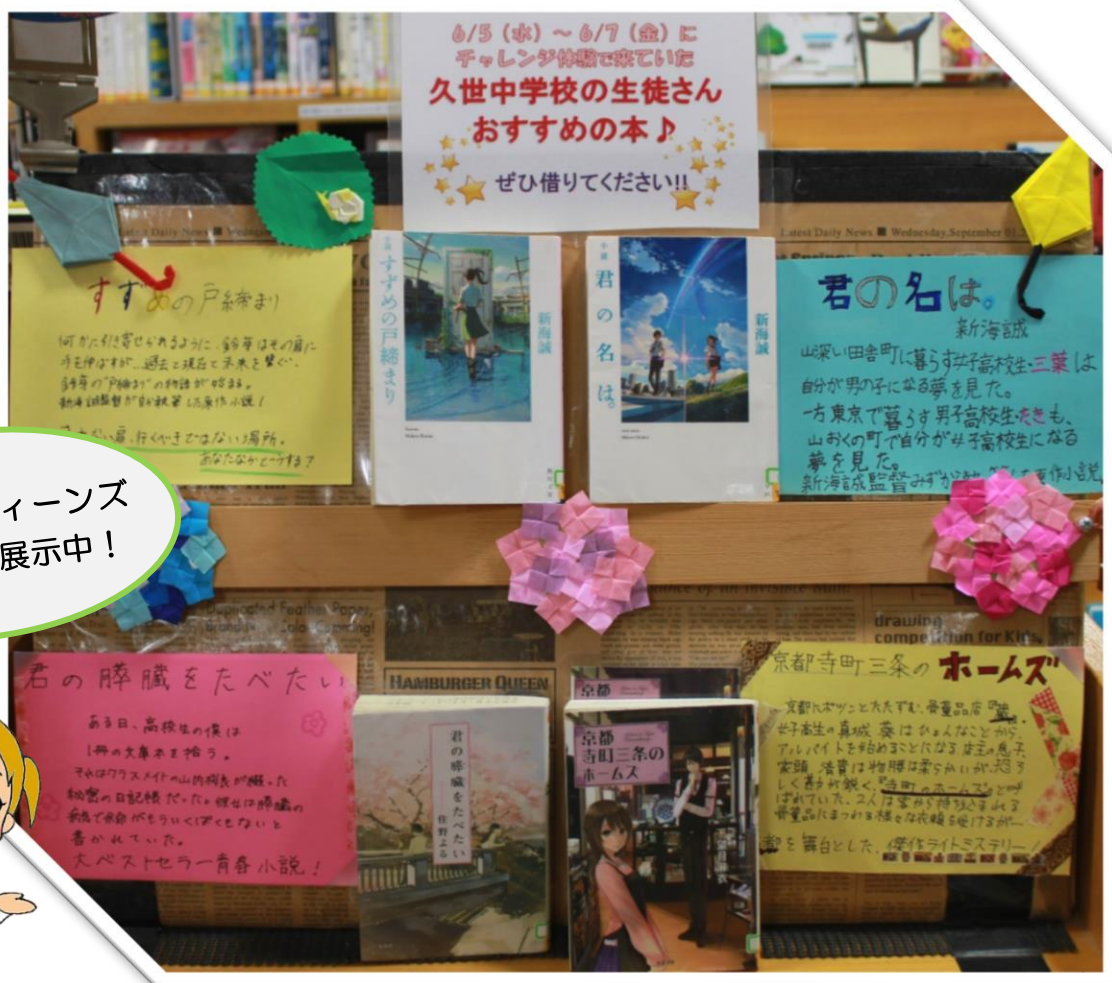 6/5(水)~6/7(金)に
チャレンジ体験で来ていた
久世中学校の生徒さん
おすすめの本♪
ぜひ借りてください!!
Latest Daily News ■ Wednesday, September 01
すずめの戸締まり
何かに引き寄せられるように、鈴芽はその扉に
手を伸ばすが…過去と現在と未来を繋ぐ、
鈴芽の"戸締まり"の物語が始まる。
新海誠監督が自ら執筆した原作小説!
扉、行くべきではない場所。
あなたならどうする?
小説
すずめの戸締まり
新海誠
小説
君の名は。
新海誠
君の名は。
新海誠
山深い田舎町に暮らす女子高校生・三葉は
自分が男の子になる夢を見た。
一方東京で暮らす男子高校生・たきも、
山おくの町で自分が女子高校生になる
夢を見た。
新海誠監督みずから 原作小説
ィーンズ
展示中!
Duplicated Feather Paper,
drawing
competition for Kids
HAMBURGER QUEEN
君の膵臓をたべたい
ある日、高校生の僕は
1冊の文庫本を拾う。
それはクラスメイトの山内桜良が綴った
秘密の日記帳だった。彼女は膵臓の
病気で余命がもういくばくもないと
書かれていた。
大ベストセラー青春小説!
君の膵臓をたべたい
住野よる
京都
京都
寺町三条の
ホームズ
望月麻衣
京都寺町三条のホームズ
京都にポツンとたたずむ、骨董品店『蔵』。
女子高生の真城 葵はひょんなことから
アルバイトを始めることになる。店主の息子、
家頭 清貴は物腰は柔らかいが、恐ろ
しく勘が鋭く、『寺町のホームズ』と呼
ばれていた。2人は客から持ち込まれる
骨董品にまつわる様々な依頼を受けるが―
都を舞台とした、傑作ライトミステリー!